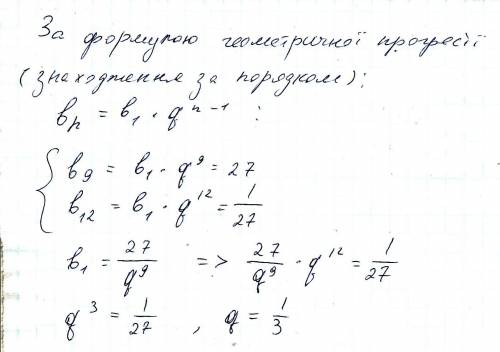 За формулою геометричної прогресії
(знаходження за порядком):
bₙ = b₁ · qⁿ⁻¹ :
b₉ = b₁ · q⁹ = 27
b₁₂ = b₁ · q¹² = 1/27
b₁ = 27/q⁹ => 27/q⁹ · q¹² = 1/27
q³ = 1/27 , q = 1/3